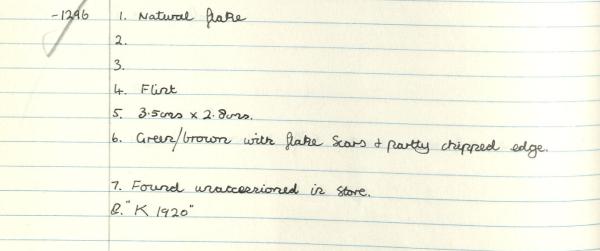 -1246 1. Natural flake
2.
3.
4. Flint
5. 3.5cms x 2.8cms.
6. Green/brown with flake scars + partly chipped edge.
7. Found unaccessioned in store.
8. "K 1920"